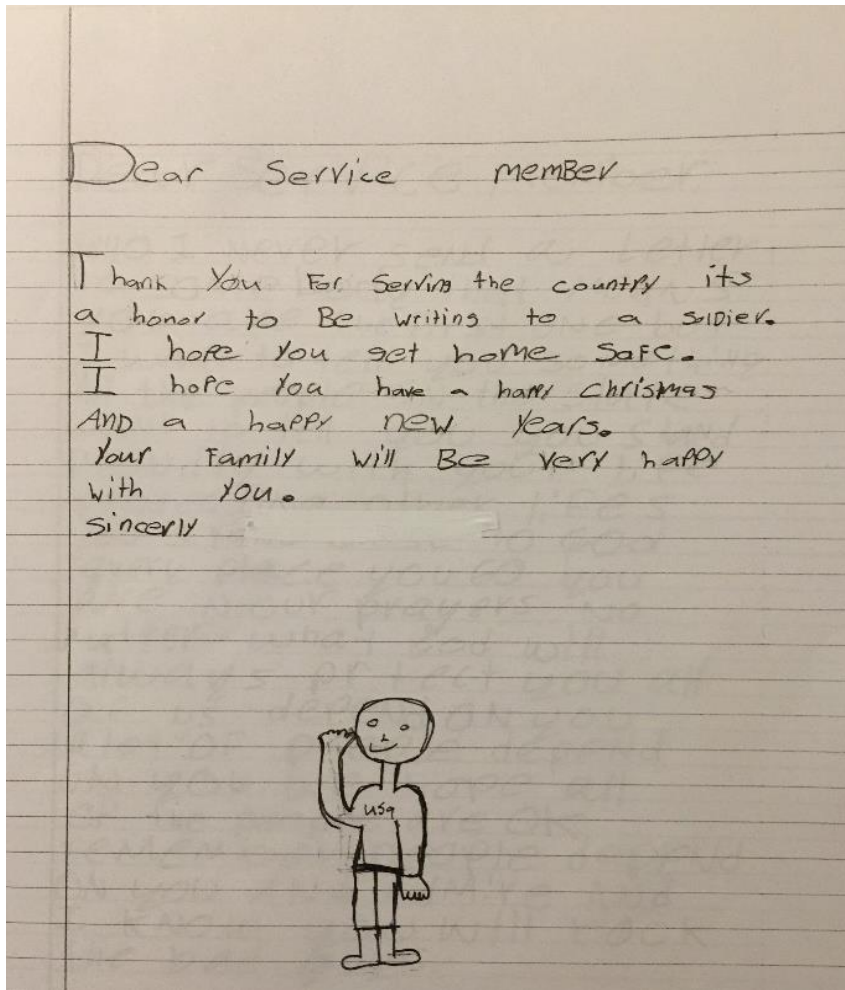 Dear Service memBer
Thank You For Serving the country its
a honor to Be writing to a SolDier.
I hope you get home Safe.
I hope You have a happy christmas
AND a happy new years.
Your Family will Be very happy
with you.
sincerly
usa